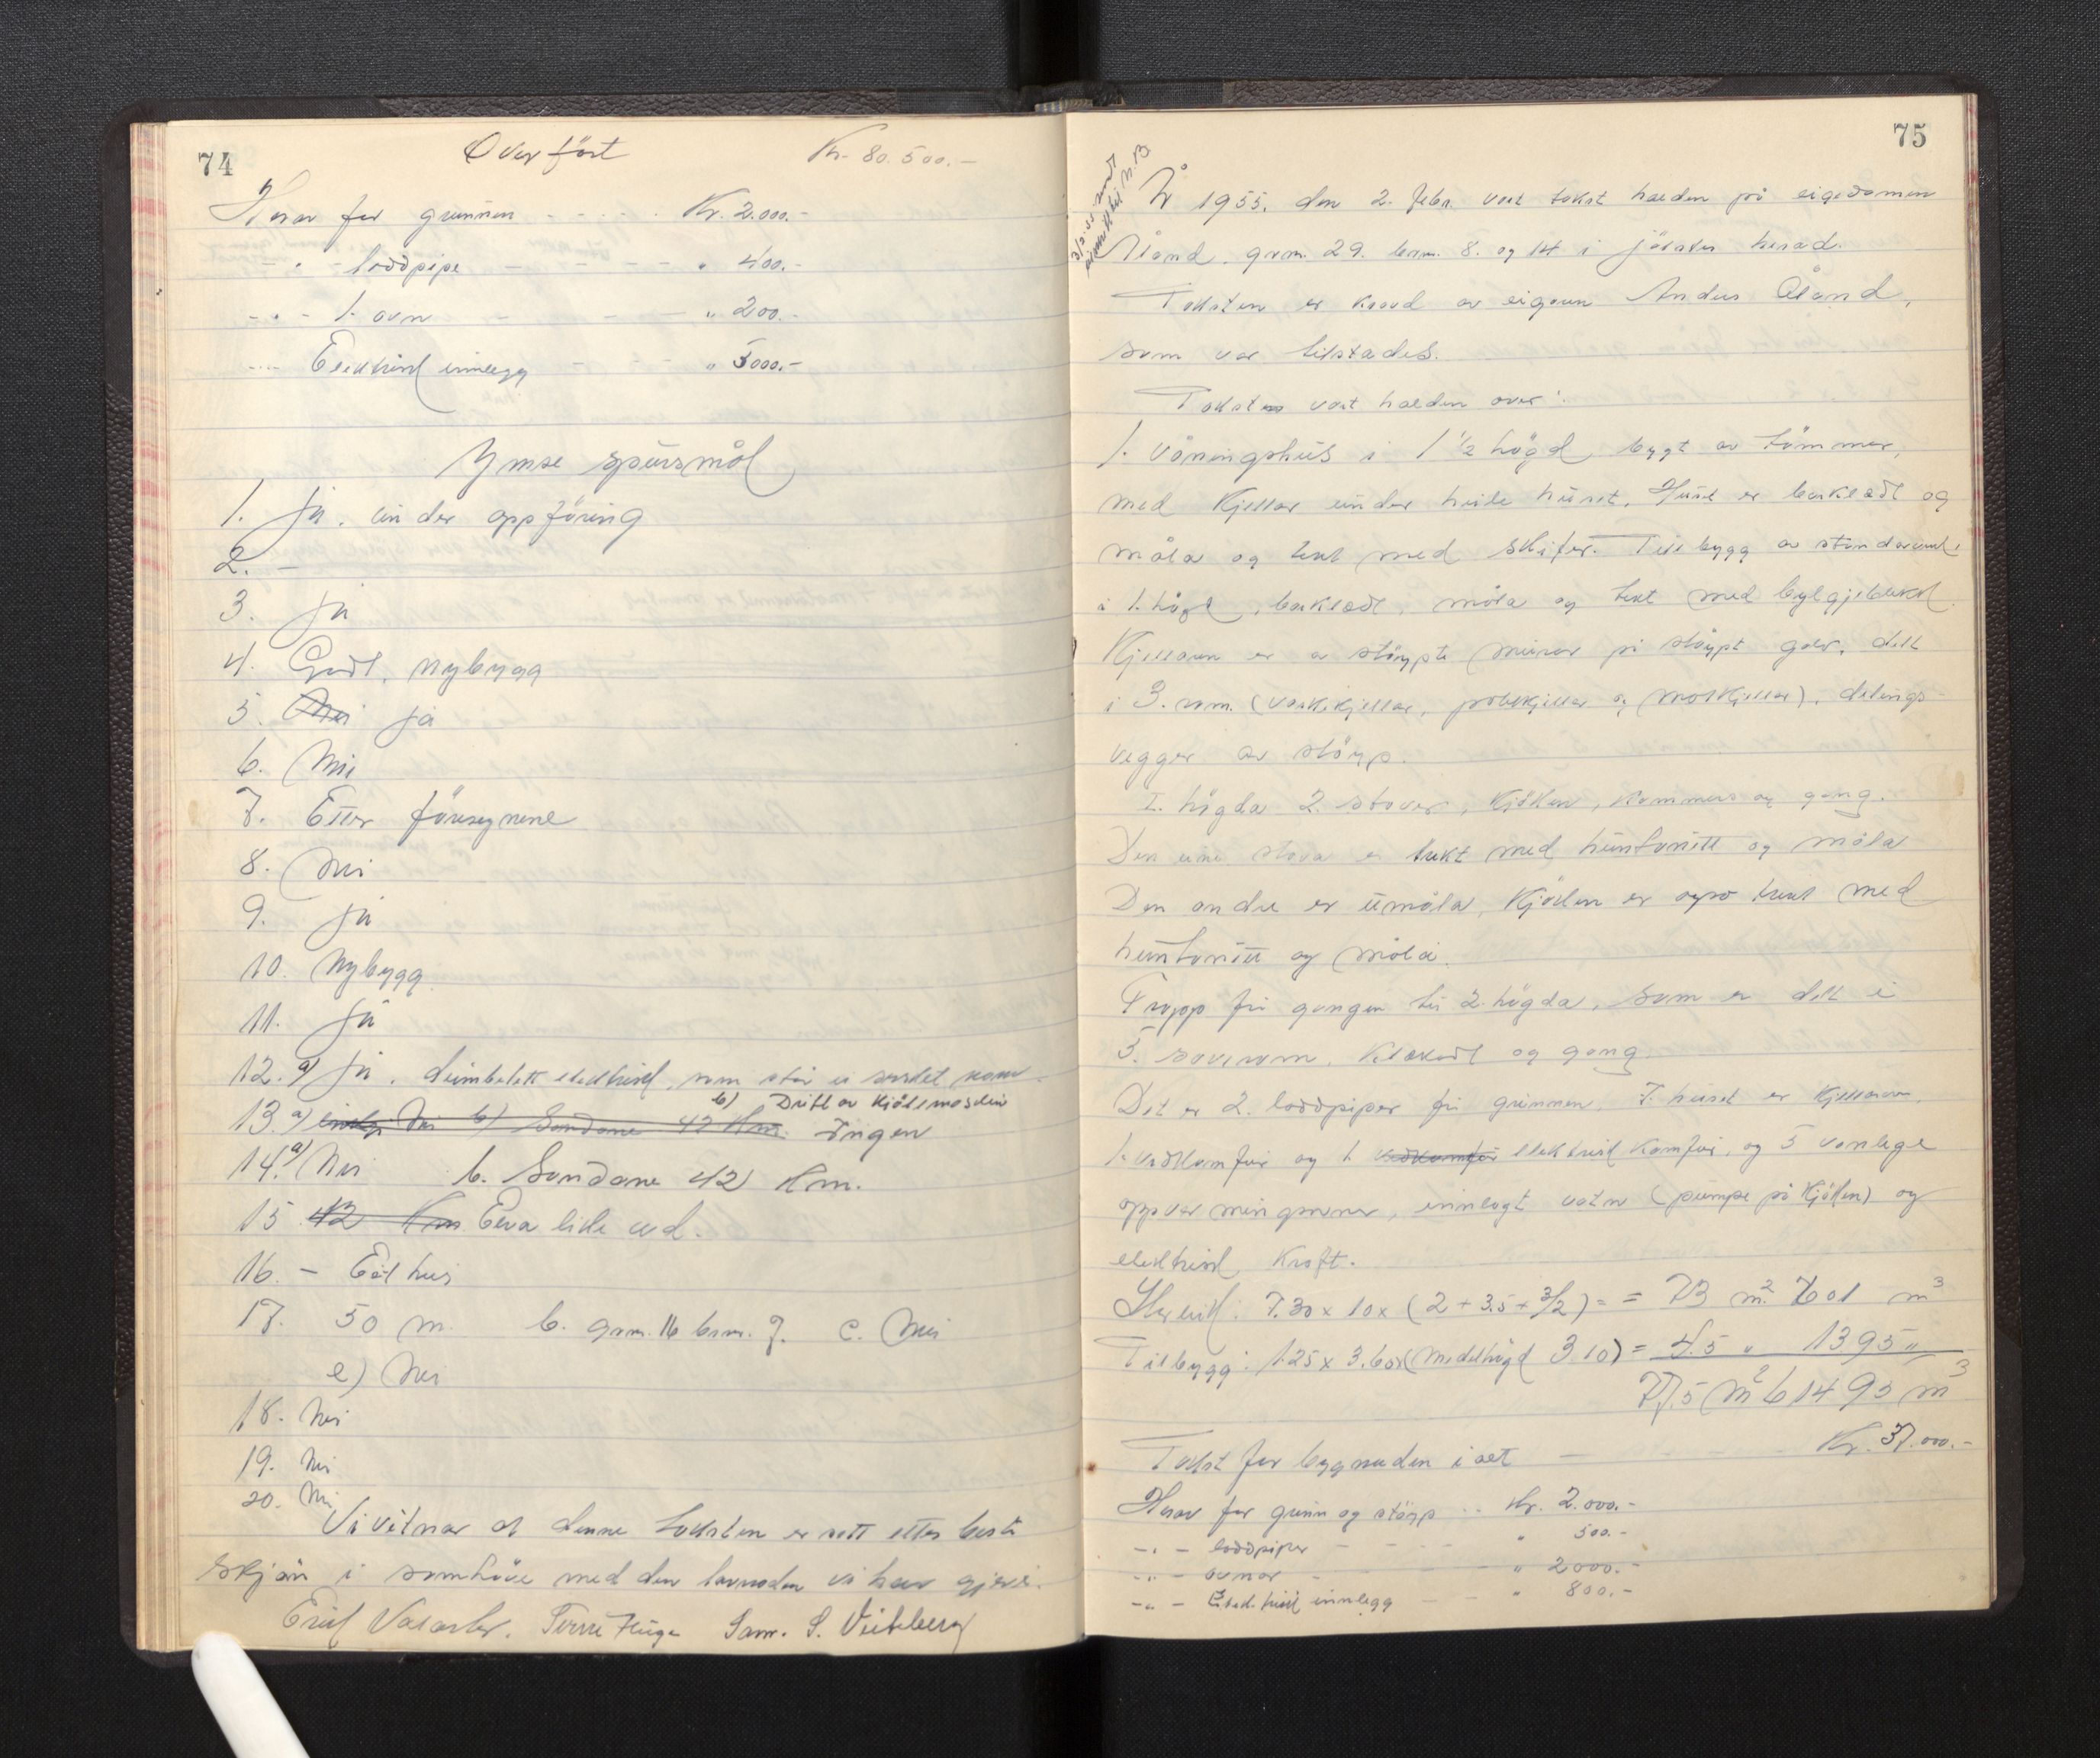 74
Overført Kr. 80.500.-
Herav for grunnen - - - - Kr. 2.000.-
- " - loddpipe - - - - " 400.-
- " - 1. ovn - - - " 200.-
- " - Elektrisk innlegg - - - " 5000.-
Ymse spursmål
1. Ja. under oppføring
2. -
3. Ja
4. Godt, nybygg
5. Nei ja
6. Nei
7. Etter føresegnene
8. Nei
9. Ja
10. Nybygg.
11. Ja
12. a) Ja. elektrisk, som står i serskilt rom.
b) Drift av kjølemaskin
13. a) Nei b) Sandane 42 Km. Ingen
14. a) Nei b. Sandane 42 Km.
15. 42 Km Elva like ved.
16. - Eit hus
17. 50 m. b. gnr. 16 bnr. 7. c. Nei
e) Nei
18. Nei
19. Nei
20. Nei
Vi vitnar at denne taksten er sett etter beste
skjøn i samhøve med den lovnaden vi hev gjeve.
Sam. S.
75
År 1955. den 2. febr. vart takst halden på eigedomen
Åland. gnr. 29. bnr. 8. og 14 i Jølster herad.
Taksten er kravd av eigaren Anders Åland,
som var tilstades.
Taksten vart halden over:
1. Våningshus i 1 1/2 høgd bygt av tømmer,
med kjellar under heile huset. Huset er bordkledt og
måla og tekt med skifer. Tilbygg av standarverk
i 1. høgd, bordkledt, måla og tekt med bylgjeblekk.
Kjellaren er av støypte murar på støypt golv, delt
i 3. rom. (vaskekjellar, potetkjellar og matkjellar), delings-
vegger av støyp.
I. høgda 2. stover, kjøken, kammers og gang.
Den eine stova er trekt med huntonitt og måla
Den andre er umåla, kjøken er også trekt med
huntonitt og måla.
Trapp frå gangen til 2. høgda, som er delt i
5. soverom, kott og gang.
Det er 2. loddpiper frå grunnen. I. huset er kjellaren.
1. vedkomfur og 1 vedkomfur elektrisk komfur, og 5 vanlege
oppvarmingsovnar, innlagt vatn (pumpe på kjøken) og
elektrisk kraft.
Storleik: 7.30 x 10 x (2 + 3.5 + 3/2) = = 73 m² 601 m³
Tilbygg: 1.25 x 3.60 x (medelhøgd 3.10) = 4.5 " 13.95 "
77.5 m² 614.95 m³
Takst for bygnaden i alt - - - Kr. 37.000.-
Herav for grunn og støyp - - Kr. 2.000.-
- " - loddpiper - - - " 500.-
- " - ovnar - - - " 2000.-
- " - Elektrisk innlegg - - " 800.-